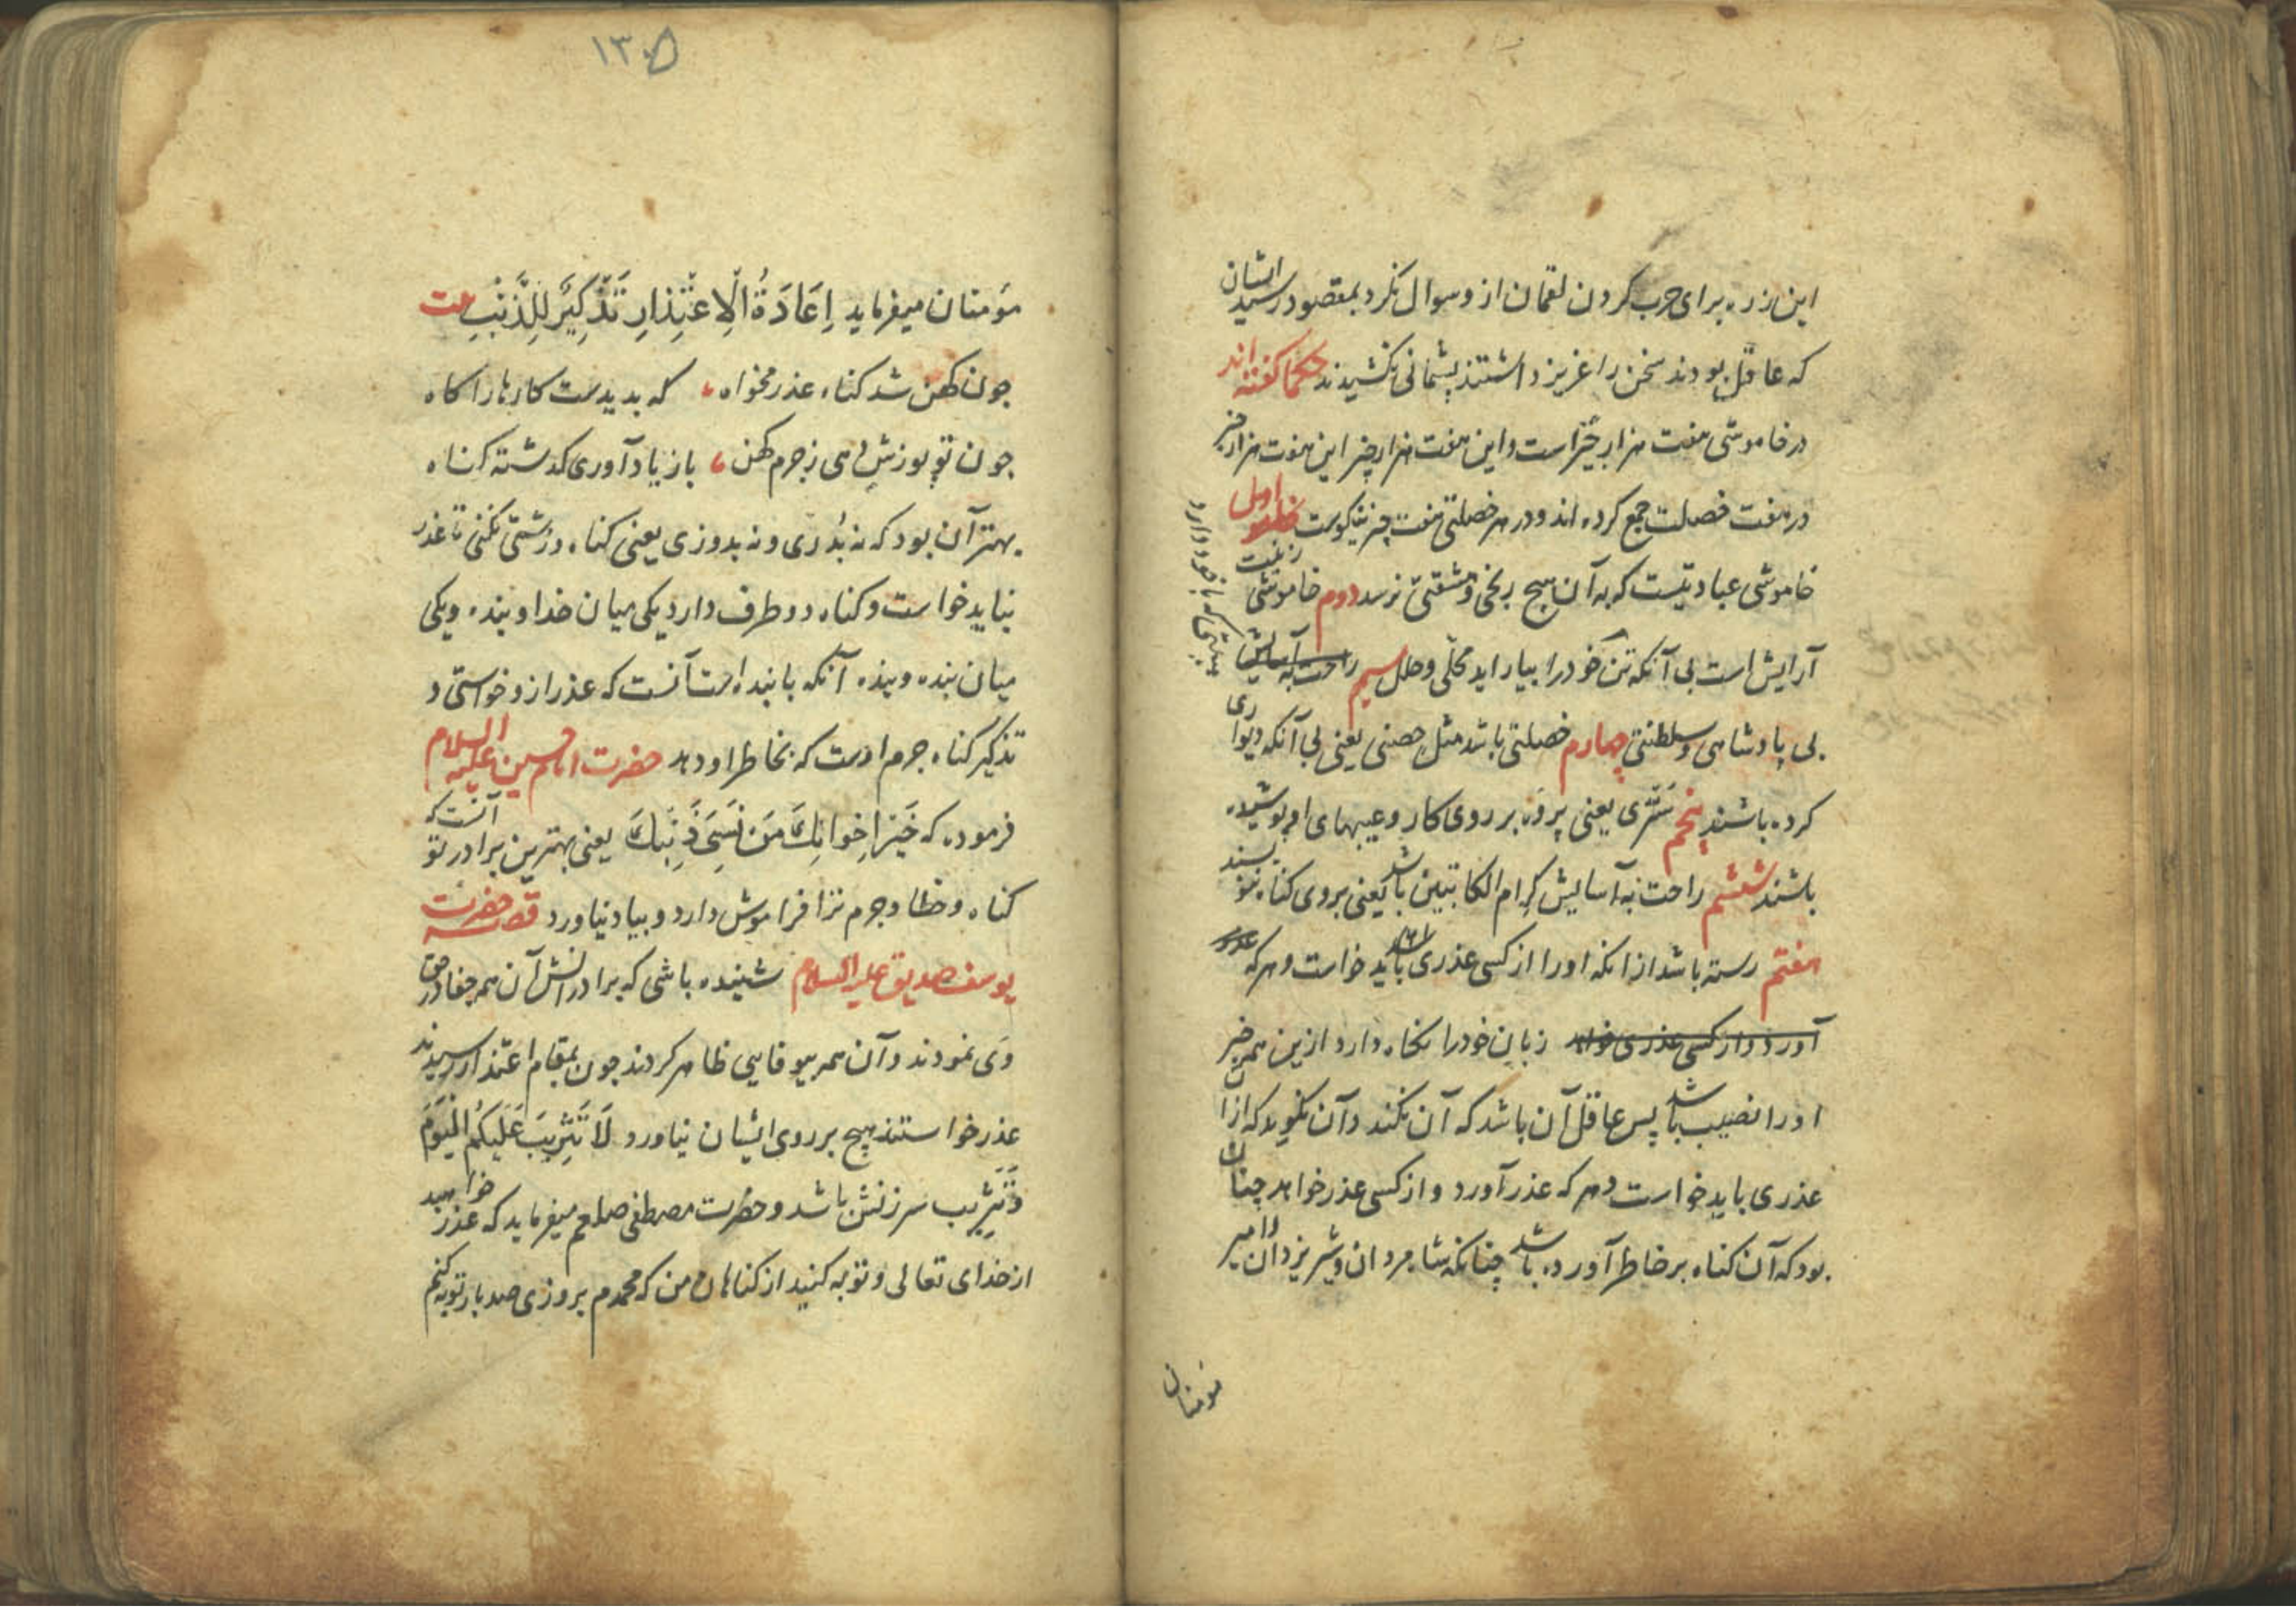 این زره برای حرب کردن لقمان ازو سوال نکرد بمقصود رسید ایشان
که عاقل بودند سخن را عزیز داشتند پشمانی نکشیدند حکما کفته اند
در خاموشی هفت هزار خیر است و این هفت هزار خیر این هفت هزار خیر
در هفت خصلت جمع کرده اند و در هر خصلتی هفت چیز نیکوست اول
خاموشی عبادتیست که به آن هیچ رنجی و مشقتی نرسد دوم خاموشی زینت
آرایش است بی آنکه تن خود را بیاراید محلی و حلل سیم
بی پادشاهی و سلطنتی چهارم خصلتی باشد مثل حصنی یعنی بی آنکه دیواری
کرده باشند پنجم ستری یعنی پرده بر روی کار و عیبهای او پوشیده
باشند ششم راحت به آسایش کرام الکاتبین باشد یعنی بروی کناه ننویسند
هفتم رسته باشد از انکه او را از کسی عذری باید خواست و هر که
آورد و از کسی عذری خواهد زبان خود را نکاه دارد ازین همه خیر
او را نصیب باشد پس عاقل آن باشد که آن نکند و آن نکوید که از آن
عذری باید خواست و هر که عذر آورد و از کسی عذر خواهد چنان
بود که آن کناه بر خاطر آورده باشد چنانکه شاه مردان و شیر یزدان امیر
مومنان
۱۳۵
مؤمنان میفرماید اِعَادَةُ الْاِعْتِذارِ تَذْکِیرٌ لِلذَّنْبِ بیت
جون کهن شد کناه عذر مخواه که بدیدست کارها را کاه
جون تو پوزش دهی ز جرم کهن باز یاد آوری کذشته کناه
بهتر آن بود که نه بدری و نه بدوزی یعنی کناه و زشتی نکنی تا عذر
نباید خواست و کناه دو طرف دارد یکی میان خدا و بنده و یکی
میان بنده و بنده آنکه با بنده است آنست که عذر ازو خواستی و
تذکیر کناه جرم اوست که بخاطر او دهد حضرت امام حسین علیه السلام
فرموده که خَیْرُ اِخْوانِکَ مَنْ نَسِیَ ذَنْبَکَ یعنی بهترین برادر تو آنست که
کناه و خطا و جرم ترا فراموش دارد و بیاد نیاورد قصه حضرت
یوسف صدیق علیه السلام شنیده باشی که برادرانش آن همه جفا در حق
وی نمودند و آن همه بیوفایی ظاهر کردند جون بمقام اعتذار رسیدند
عذر خواستند هیچ بر روی ایشان نیاورد لَا تَثْرِیبَ عَلَیْکُمُ الْیَوْمَ
و تثریب سرزنش باشد و حضرت مصطفی صلعم میفرماید که عذر خواهید
از خدای تعالی و توبه کنید از کناهان من که محمدم بروزی صد بار توبه کنم